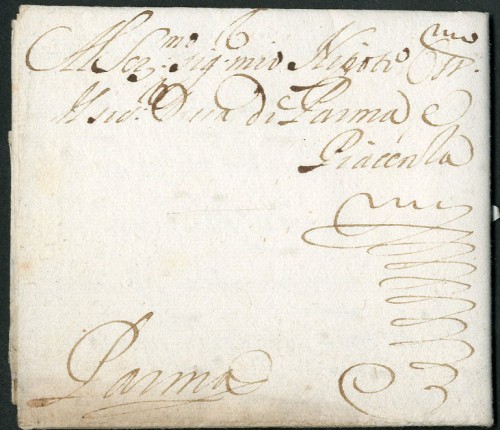 Al Ser.mo Sig.r mio Nipote Oss.mo
Il Sig.r Duca di Parma e
Piacenza
Parma